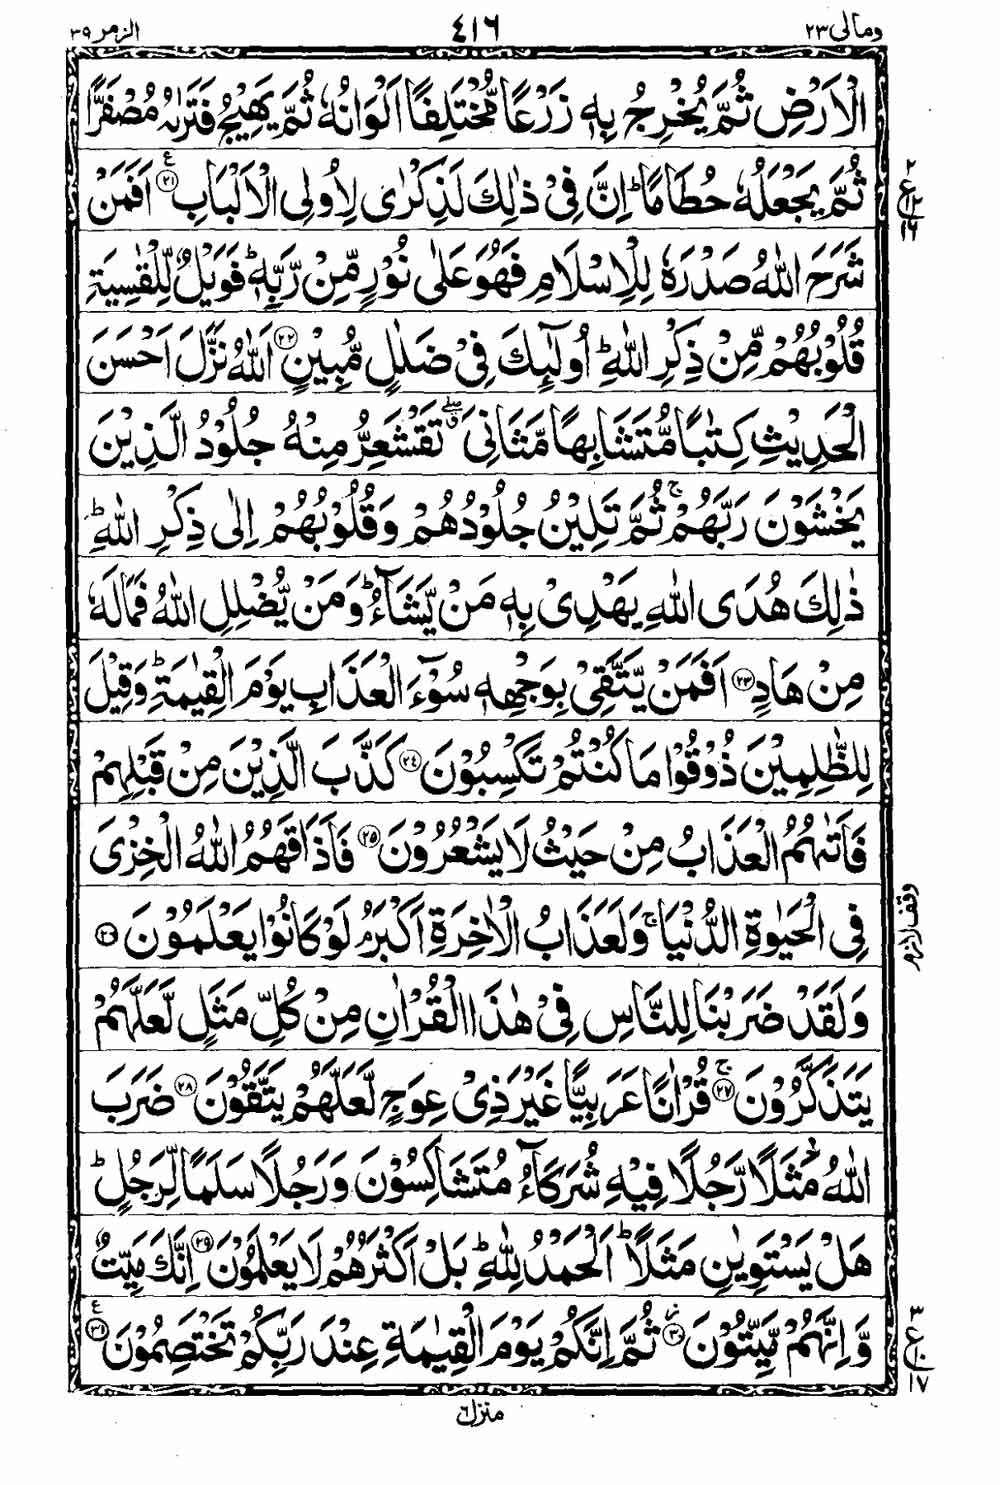 ومالی ٢٣ ٤١٦ الزمر ٣٩
الْاَرْضِ ثُمَّ يُخْرِجُ بِهٖ زَرْعًا مُّخْتَلِفًا اَلْوَانُهٗ ثُمَّ يَهِيْجُ فَتَرٰىهُ مُصْفَرًّا
ثُمَّ يَجْعَلُهٗ حُطَامًا ؕ اِنَّ فِيْ ذٰلِكَ لَذِكْرٰى لِاُولِي الْاَلْبَابِ ﴿٢١﴾ ع اَفَمَنْ
٢
ع
١٢
١٦
شَرَحَ اللّٰهُ صَدْرَهٗ لِلْاِسْلَامِ فَهُوَ عَلٰى نُوْرٍ مِّنْ رَّبِّهٖ ؕ فَوَيْلٌ لِّلْقٰسِيَةِ
قُلُوْبُهُمْ مِّنْ ذِكْرِ اللّٰهِ ؕ اُولٰٓئِكَ فِيْ ضَلٰلٍ مُّبِيْنٍ ﴿٢٢﴾ اَللّٰهُ نَزَّلَ اَحْسَنَ
الْحَدِيْثِ كِتٰبًا مُّتَشَابِهًا مَّثَانِيَ ۖق تَقْشَعِرُّ مِنْهُ جُلُوْدُ الَّذِيْنَ
يَخْشَوْنَ رَبَّهُمْ ۚ ثُمَّ تَلِيْنُ جُلُوْدُهُمْ وَقُلُوْبُهُمْ اِلٰى ذِكْرِ اللّٰهِ ؕ
ذٰلِكَ هُدَى اللّٰهِ يَهْدِيْ بِهٖ مَنْ يَّشَآءُ ؕ وَمَنْ يُّضْلِلِ اللّٰهُ فَمَا لَهٗ
مِنْ هَادٍ ﴿٢٣﴾ اَفَمَنْ يَّتَّقِيْ بِوَجْهِهٖ سُوْٓءَ الْعَذَابِ يَوْمَ الْقِيٰمَةِ ؕ وَقِيْلَ
لِلظّٰلِمِيْنَ ذُوْقُوْا مَا كُنْتُمْ تَكْسِبُوْنَ ﴿٢٤﴾ كَذَّبَ الَّذِيْنَ مِنْ قَبْلِهِمْ
فَاَتٰىهُمُ الْعَذَابُ مِنْ حَيْثُ لَا يَشْعُرُوْنَ ﴿٢٥﴾ فَاَذَاقَهُمُ اللّٰهُ الْخِزْيَ
فِي الْحَيٰوةِ الدُّنْيَا ۚ وَلَعَذَابُ الْاٰخِرَةِ اَكْبَرُ ۘ لَوْ كَانُوْا يَعْلَمُوْنَ ﴿٢٦﴾
وقف لازم
وَلَقَدْ ضَرَبْنَا لِلنَّاسِ فِيْ هٰذَا الْقُرْاٰنِ مِنْ كُلِّ مَثَلٍ لَّعَلَّهُمْ
يَتَذَكَّرُوْنَ ۚ ﴿٢٧﴾ قُرْاٰنًا عَرَبِيًّا غَيْرَ ذِيْ عِوَجٍ لَّعَلَّهُمْ يَتَّقُوْنَ ﴿٢٨﴾ ضَرَبَ
اللّٰهُ مَثَلًا رَّجُلًا فِيْهِ شُرَكَآءُ مُتَشٰكِسُوْنَ وَرَجُلًا سَلَمًا لِّرَجُلٍ ؕ
هَلْ يَسْتَوِيٰنِ مَثَلًا ؕ اَلْحَمْدُ لِلّٰهِ ؕ بَلْ اَكْثَرُهُمْ لَا يَعْلَمُوْنَ ﴿٢٩﴾ اِنَّكَ مَيِّتٌ
وَّاِنَّهُمْ مَّيِّتُوْنَ ۫ ﴿٣٠﴾ ثُمَّ اِنَّكُمْ يَوْمَ الْقِيٰمَةِ عِنْدَ رَبِّكُمْ تَخْتَصِمُوْنَ ﴿٣١﴾ ع
٣
ع
١٠
١٧
منزل ٦